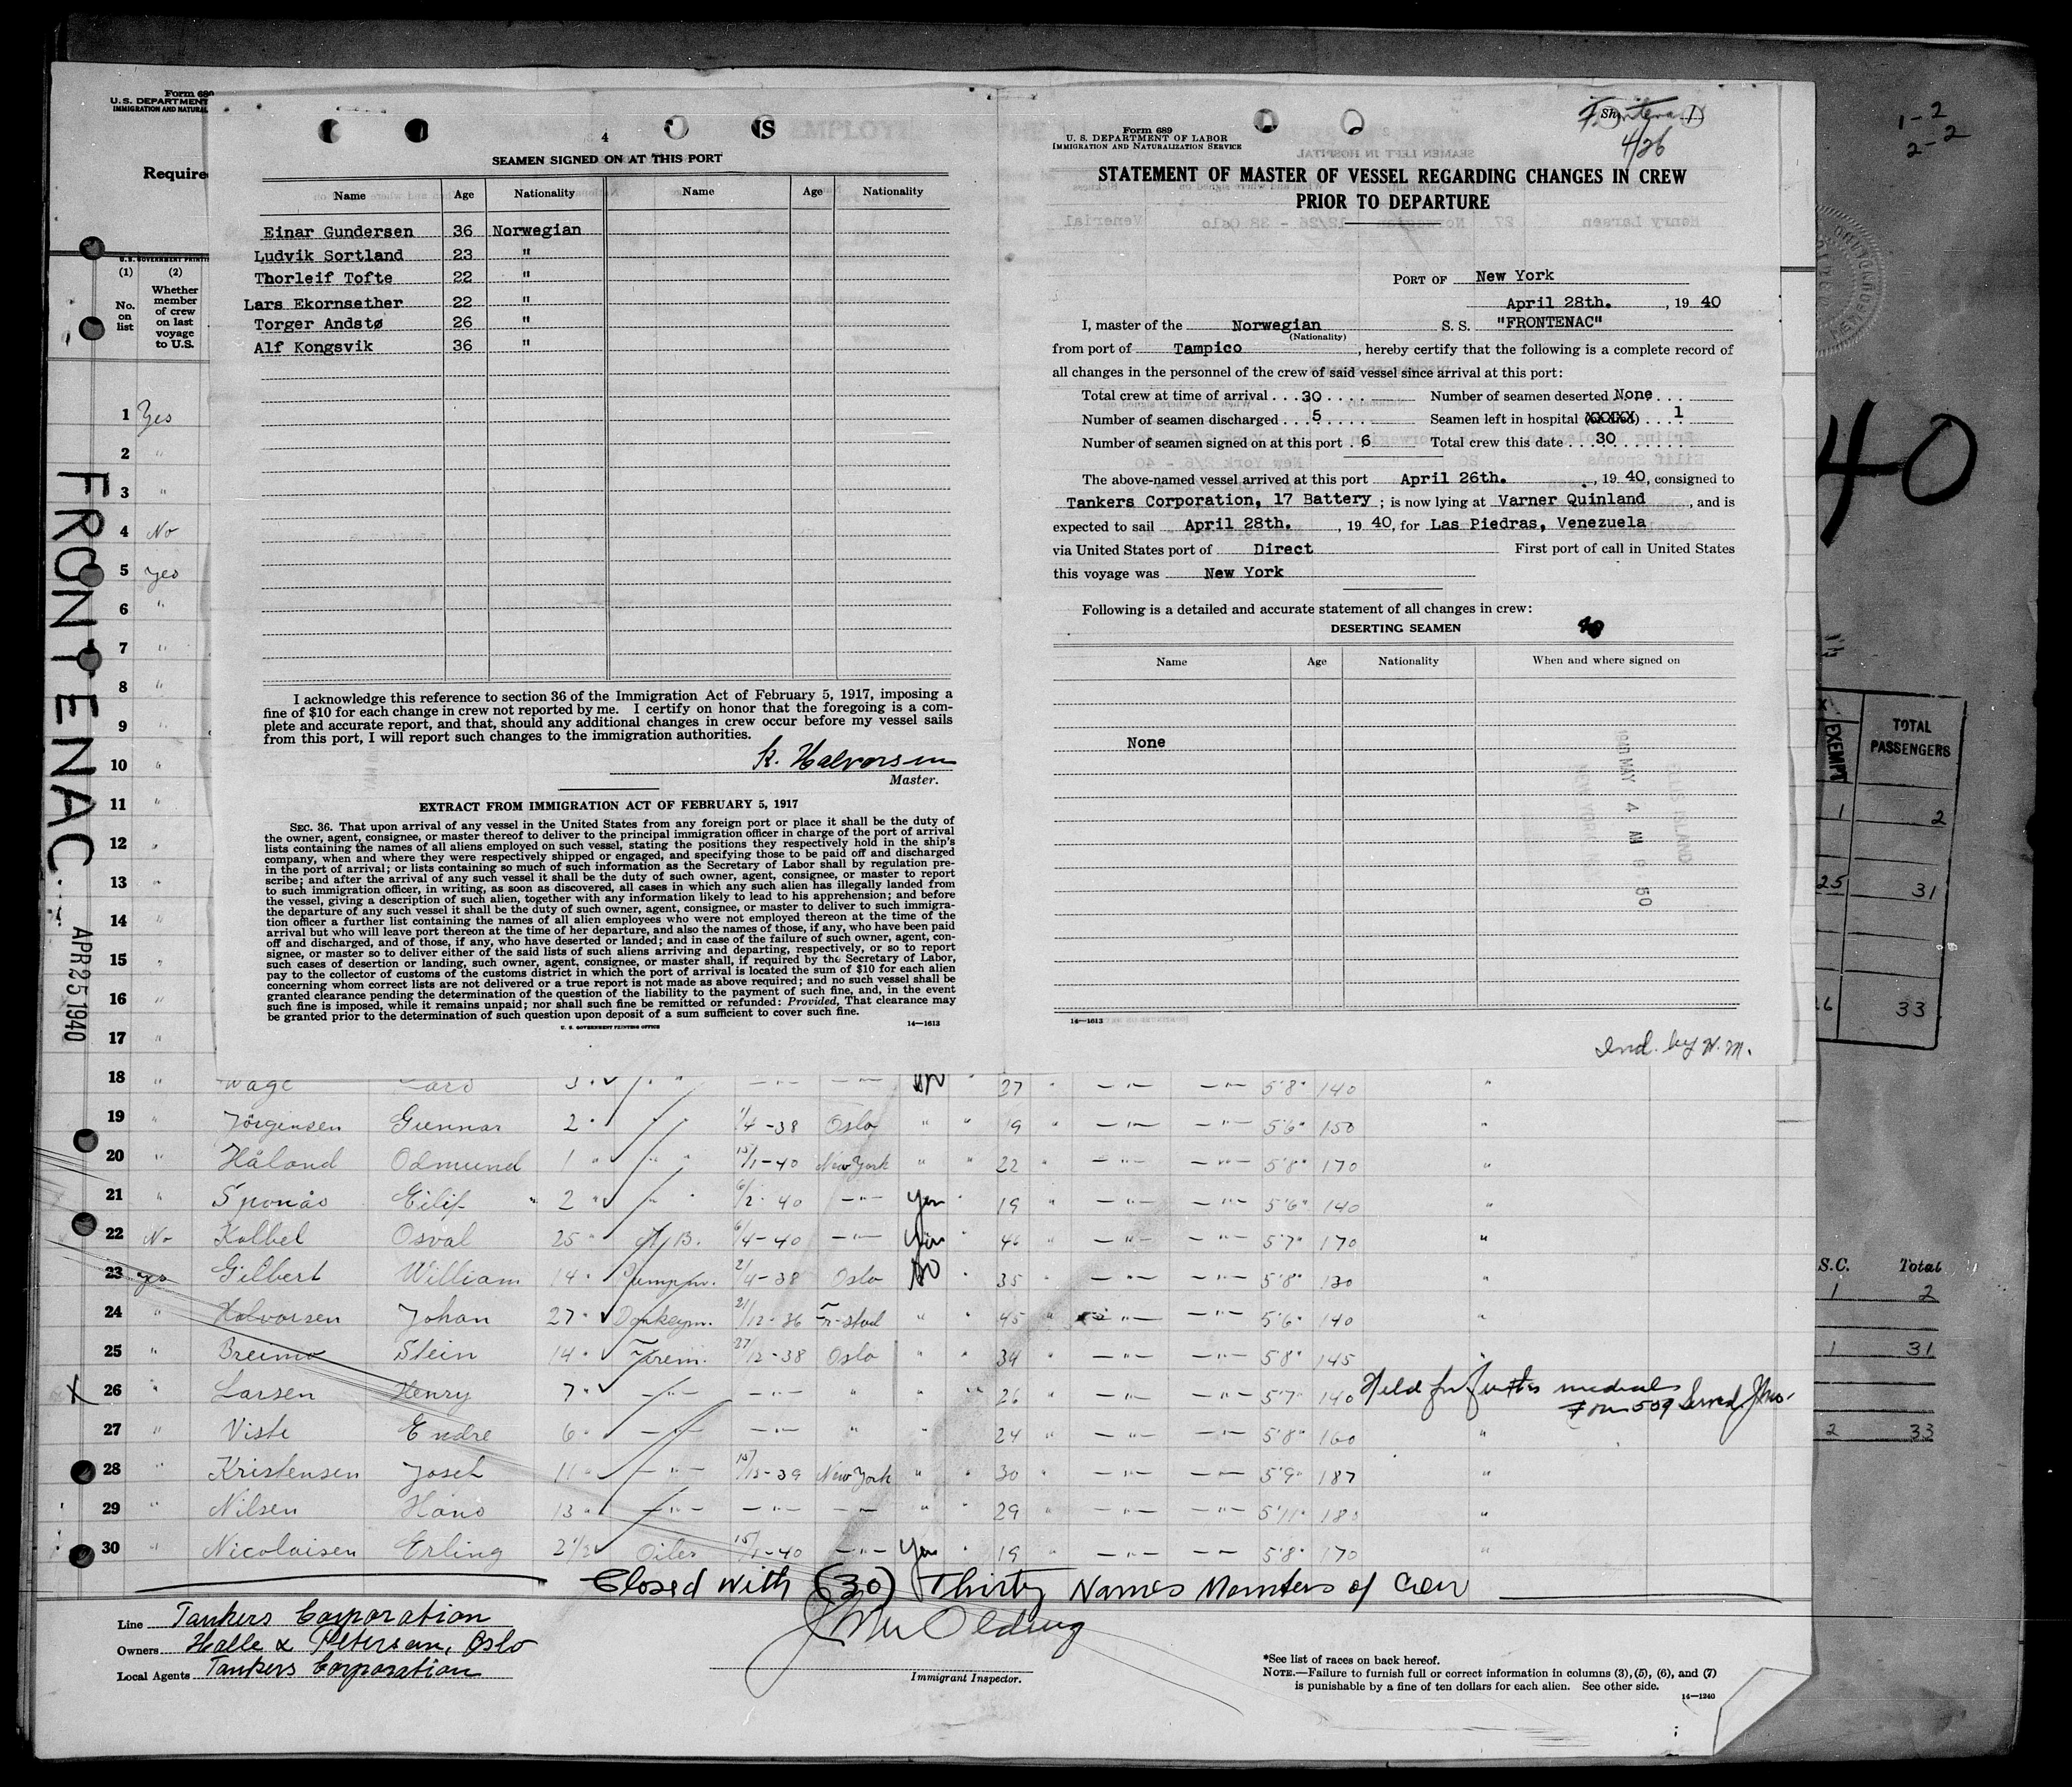 Form 689
U.S. DEPARTMENT
IMMIGRATION AND NATURAL
Require
(1) (2)
No. on list
Whether member of crew on last voyage to U.S.
FRONTENAC
APR 25 1940
1 Yes
2 "
3 "
4 No
5 Yes
6 "
7 "
8 "
9 "
10 "
11 "
12 "
13 "
14 "
15 "
16 "
17 "
4
SEAMEN SIGNED ON AT THIS PORT
Name Age Nationality Name Age Nationality
Einar Gundersen 36 Norwegian
Ludvik Sortland 23 "
Thorleif Tofte 22 "
Lars Ekornsether 22 "
Torger Andstø 26 "
Alf Kongsvik 36 "
I acknowledge this reference to section 36 of the Immigration Act of February 5, 1917, imposing a
fine of $10 for each change in crew not reported by me. I certify on honor that the foregoing is a com-
plete and accurate report, and that, should any additional changes in crew occur before my vessel sails
from this port, I will report such changes to the immigration authorities.
K. Halvorsen
Master.
EXTRACT FROM IMMIGRATION ACT OF FEBRUARY 5, 1917
SEC. 36. That upon arrival of any vessel in the United States from any foreign port or place it shall be the duty of
the owner, agent, consignee, or master thereof to deliver to the principal immigration officer in charge of the port of arrival
lists containing the names of all aliens employed on such vessel, stating the positions they respectively hold in the ship's
company, when and where they were respectively shipped or engaged, and specifying those to be paid off and discharged
in the port of arrival; or lists containing so much of such information as the Secretary of Labor shall by regulation pre-
scribe; and after the arrival of any such vessel it shall be the duty of such owner, agent, consignee, or master to report
to such immigration officer, in writing, as soon as discovered, all cases in which any such alien has illegally landed from
the vessel, giving a description of such alien, together with any information likely to lead to his apprehension; and before
the departure of any such vessel it shall be the duty of such owner, agent, consignee, or master to deliver to such immigra-
tion officer a further list containing the names of all alien employees who were not employed thereon at the time of the
arrival but who will leave port thereon at the time of her departure, and also the names of those, if any, who have been paid
off and discharged, and of those, if any, who have deserted or landed; and in case of the failure of such owner, agent, con-
signee, or master so to deliver either of the said lists of such aliens arriving and departing, respectively, or so to report
such cases of desertion or landing, such owner, agent, consignee, or master shall, if required by the Secretary of Labor,
pay to the collector of customs of the customs district in which the port of arrival is located the sum of $10 for each alien
concerning whom correct lists are not delivered or a true report is not made as above required; and no such vessel shall be
granted clearance pending the determination of the question of the liability to the payment of such fine, and, in the event
such fine is imposed, while it remains unpaid; nor shall such fine be remitted or refunded: Provided, That clearance may
be granted prior to the determination of such question upon deposit of a sum sufficient to cover such fine.
U. S. GOVERNMENT PRINTING OFFICE 14—1613
Form 689
U. S. DEPARTMENT OF LABOR
IMMIGRATION AND NATURALIZATION SERVICE
4/26
STATEMENT OF MASTER OF VESSEL REGARDING CHANGES IN CREW
PRIOR TO DEPARTURE
PORT OF New York
April 28th. , 19 40
I, master of the Norwegian S. S. "FRONTENAC"
(Nationality)
from port of Tampico , hereby certify that the following is a complete record of
all changes in the personnel of the crew of said vessel since arrival at this port:
Total crew at time of arrival . . . 30 . . . . Number of seamen deserted None . . .
Number of seamen discharged . . . . 5 . . . . . Seamen left in hospital (XXXXX) . . . 1
Number of seamen signed on at this port . 6 Total crew this date . . . 30 . . . . . .
The above-named vessel arrived at this port April 26th. , 19 40, consigned to
Tankers Corporation, 17 Battery ; is now lying at Varner Quinland , and is
expected to sail April 28th. , 19 40, for Las Piedras, Venezuela
via United States port of Direct First port of call in United States
this voyage was New York
Following is a detailed and accurate statement of all changes in crew:
DESERTING SEAMEN
Name Age Nationality When and where signed on
None
1940 MAY 4 AM 8 50
ELLIS ISLAND
14—1613
Ind. by H. M.
1-2
2-2
40
EXEMPT TOTAL PASSENGERS
1 2
25 31
26 33
S.C. Total
1 2
1 31
2 33
18 " Wage Lars 27 " 5'8" 140 "
19 " Jörgensen Gunnar 2 " 1/4-38 Oslo " " 19 " 5'6" 150 "
20 " Håland Odmund 1 " 15/1-40 New York " " 22 " 5'8" 170 "
21 " Sponås Eilif 2 " 6/2-40 Yes " 19 " 5'6" 140 "
22 No Kolbel Osval 25 " 6/4-40 46 " 5'7" 170 "
23 Yes Gilbert William 14 " Pumpm. 2/4-38 Oslo No " 35 " 5'8" 130 "
24 " Halvorsen Johan 27 " Donkeym. 21/12-36 Fr-stad " " 45 " 5'6" 140 "
25 " Breimo Stein 14 " Firem. 27/12-38 Oslo " " 34 " 5'8" 145 "
X 26 " Larsen Henry 7 " " " 26 " 5'7" 140 Held for further medical Form 509 Served
27 " Viste Endre 6 " " " 24 " 5'8" 160 "
28 " Kristensen Josef 11 " New York " " 30 " 5'9" 187 "
29 " Nilsen Hans 13 " " " 29 " 5'11" 180 "
30 " Nicolaisen Erling 2 1/2 Oiler 15/1-40 Yes " 19 " 5'8" 170 "
Closed with (30) Thirty Names Members of Crew
Line Tankers Corporation
Owners Halle & Petersen, Oslo
Local Agents Tankers Corporation
Immigrant Inspector.
*See list of races on back hereof.
NOTE.—Failure to furnish full or correct information in columns (3), (5), (6), and (7)
is punishable by a fine of ten dollars for each alien. See other side.
14—1240